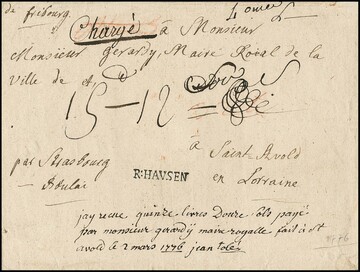 de fribourg
Chargé à Monsieur
Monsieur Gerardy, Maire Roial de la
Ville de St
15 - 12 =
à
par Strasbourg
Saint-Avold
en Lorraine
R:HAVSEN
jay recue quinze livres Douze sols payé
par monsieur gerardÿ maire royalle fait à st
avold le 2 mars 1776 jean
1776